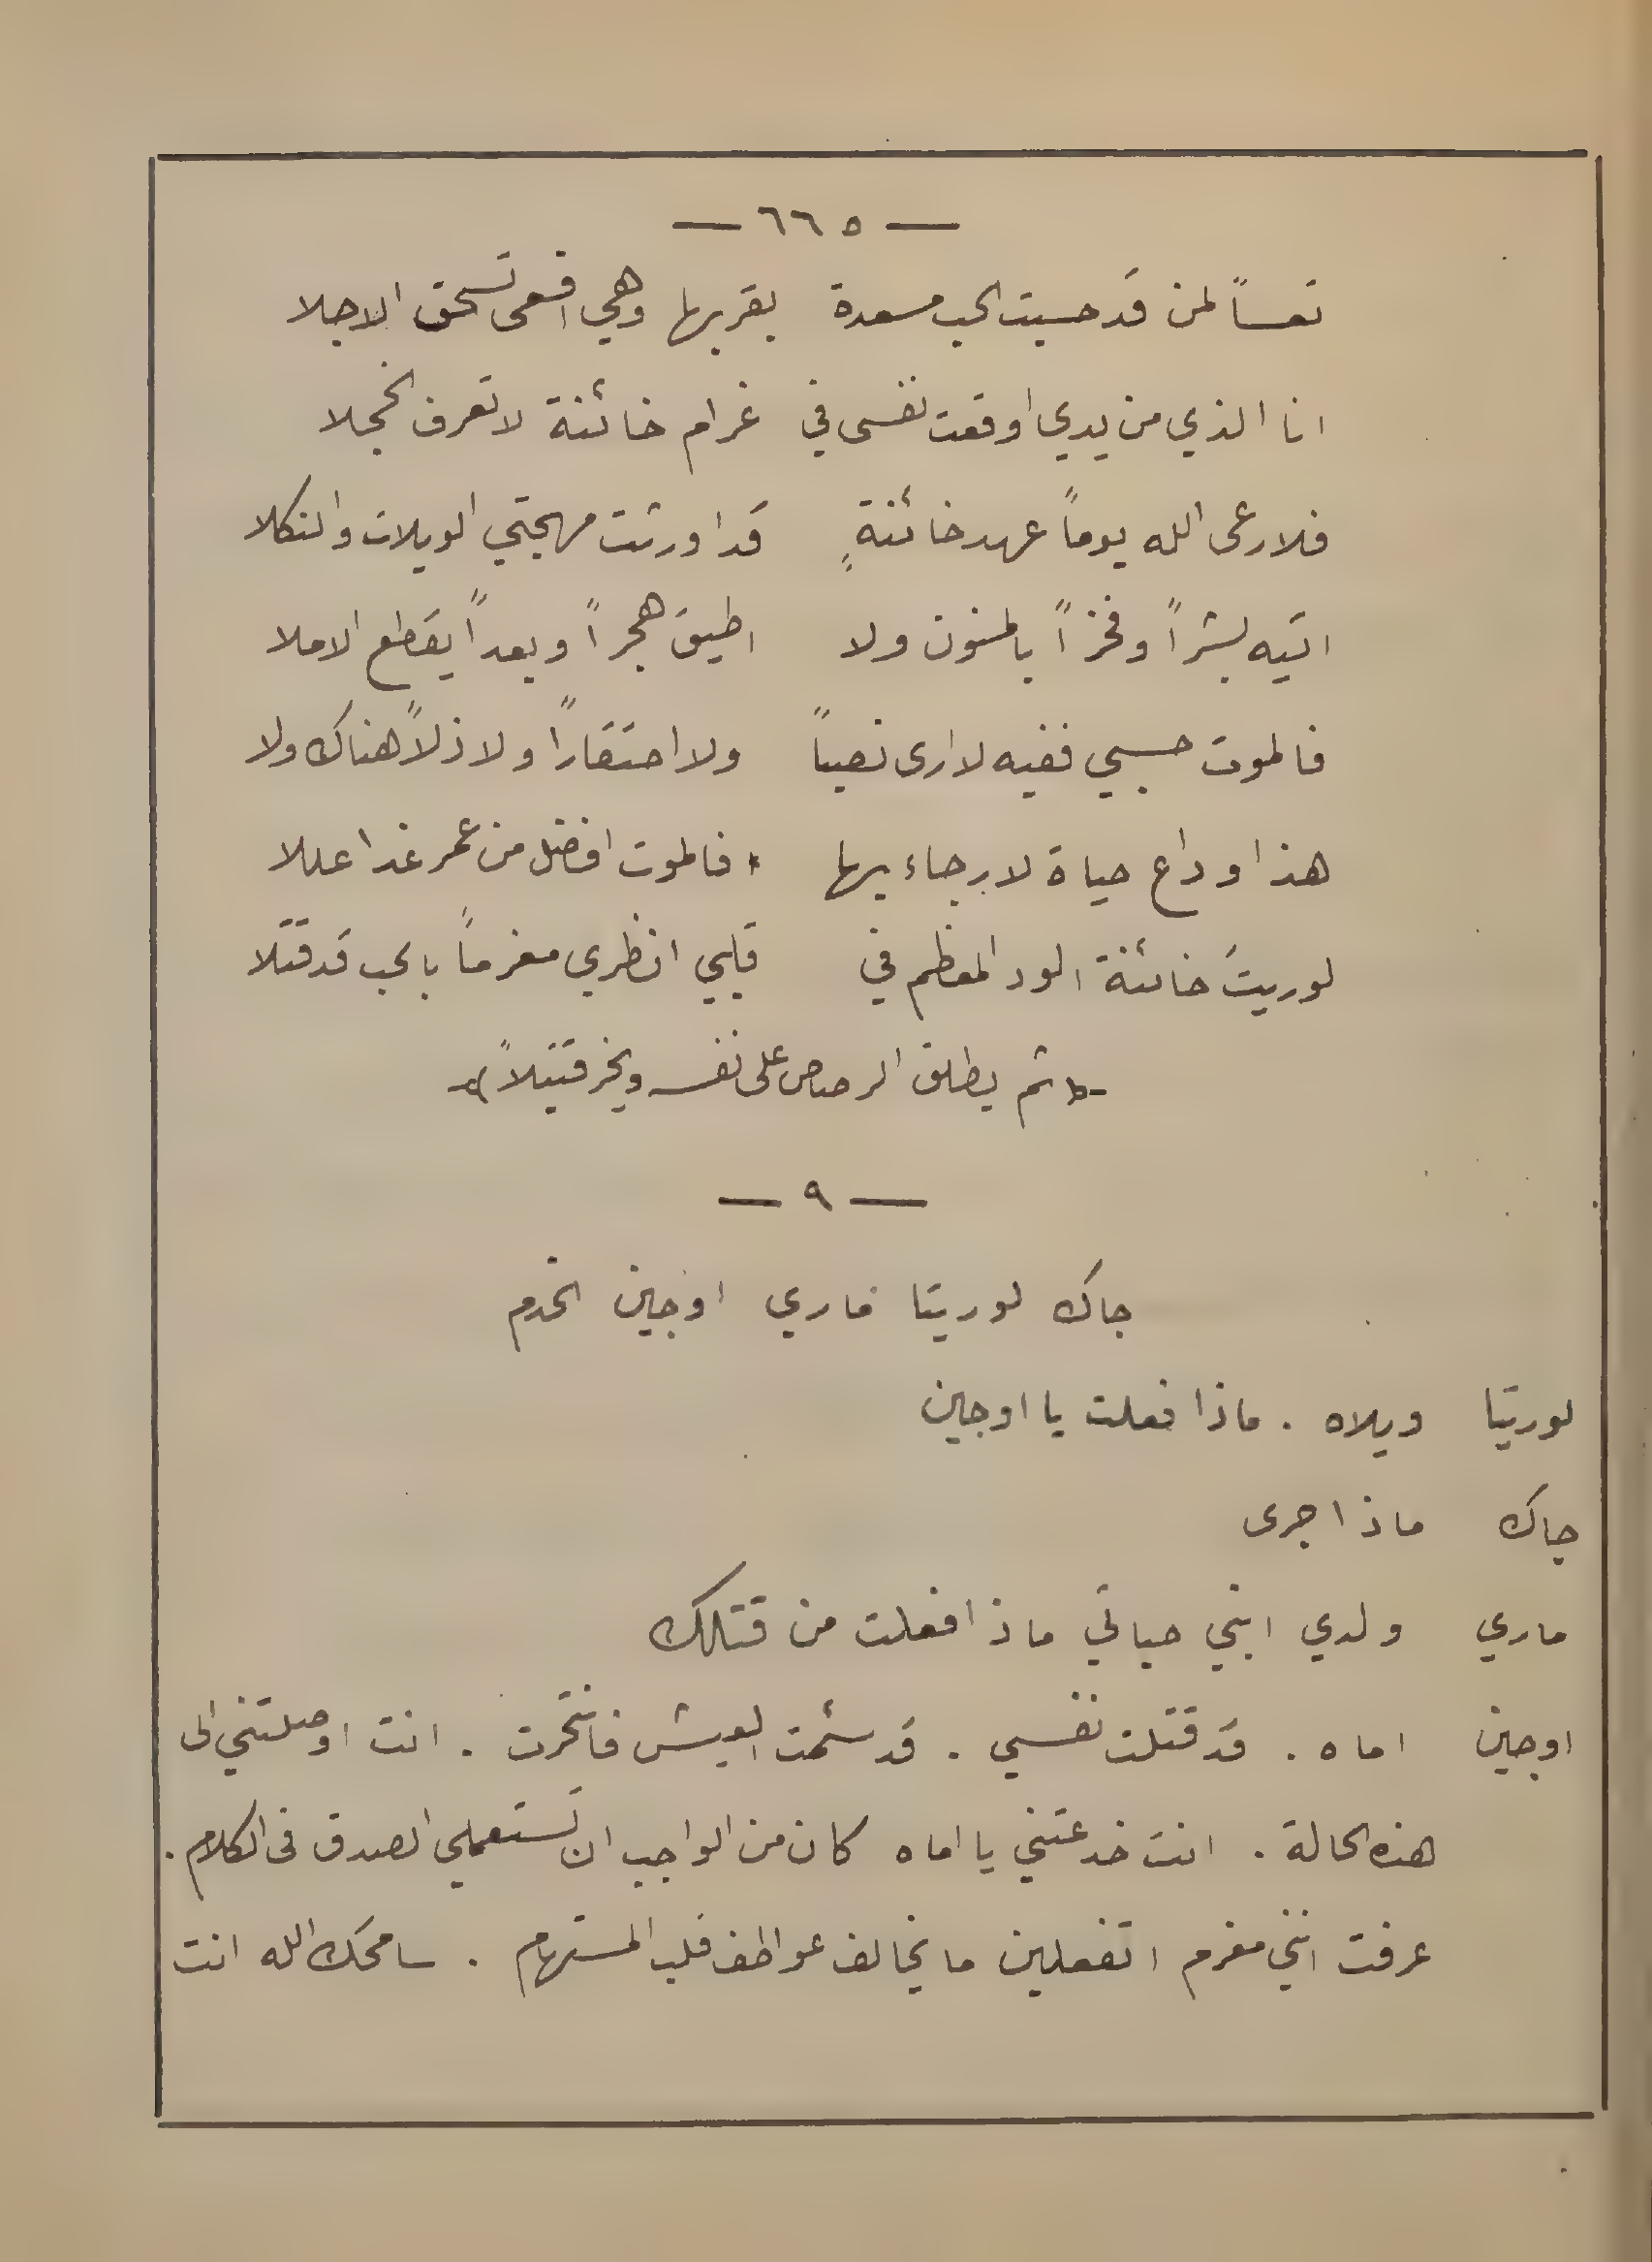 — ٦٦٥ —
تعساً لمن قد حسبت الحب مسعدة بقربها وهي افعى تسحق الاجلا
انا الذي من يدي اوقعت نفسى في غرام خائنة لا تعرف الخجلا
فلا رعى الله يوماً عهد خائنةٍ قد اورثت مهجتي الويلات والنكلا
اتيه بشراً وفخراً بالمنون ولا اطيق هجراً وبعداً يقطع الاملا
فالموت حسبي ففيه لا ارى نصباً ولا احتقاراً ولا ذلاً هناك ولا
هذا وداع حياة لا رجاء بها فالموت افضل من عمر غدا عللا
لوريت خائنة الود المعظم في قلبي انظري مغرماً بالحب قد قتلا
(ثم يطلق الرصاص على نفسه ويخر قتيلاً)
— ٩ —
جاك لوريتا ماري اوجين الخدم
لوريتا ويلاه . ماذا فعلت يا اوجين
جاك ماذا جرى
ماري ولدي ابني حياتي ماذا فعلت من قتلك
اوجين اماه . قد قتلت نفسي . قد سئمت العيش فانتحرت . انت اوصلتني الى
هذه الحالة . انت خدعتني يا اماه كان من الواجب ان تستعملي الصدق فى الكلام .
عرفت انني مغرم اتفعلين ما يخالف عواطف قلب المستهام . سامحك الله انت